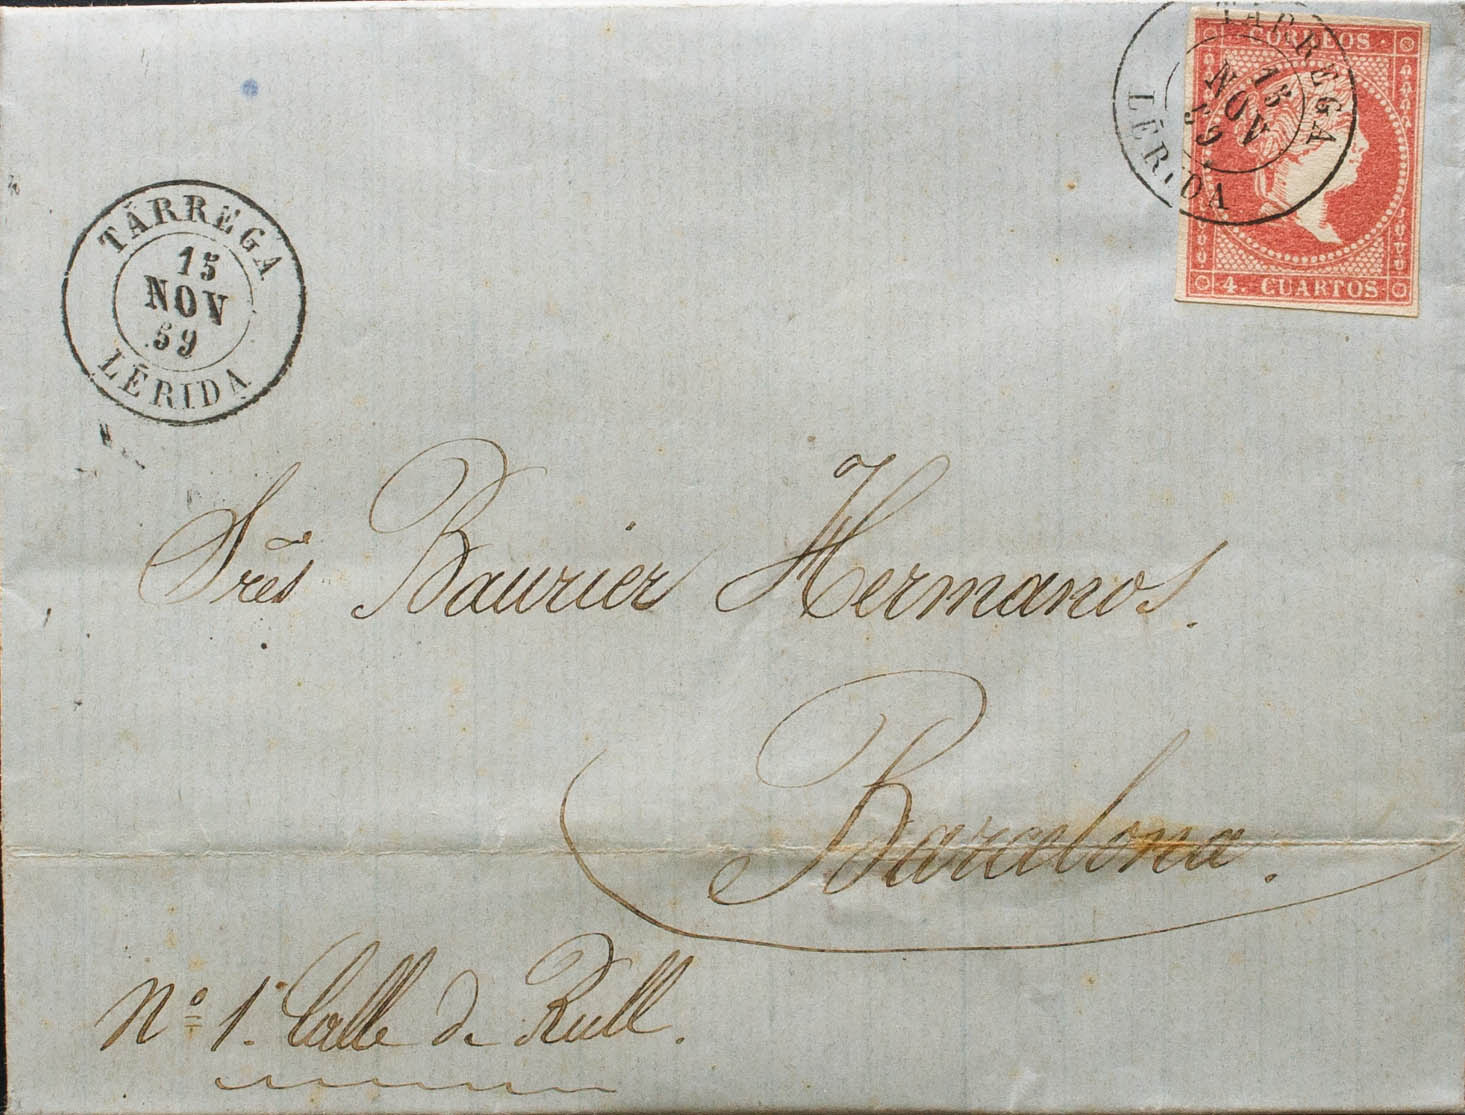 CORREOS
TÁRREGA
15
NOV
59
LÉRIDA
4. CUARTOS
TÁRREGA
15
NOV
59
LÉRIDA
Sres Baurier Hermanos.
Barcelona.
Nº 1. Calle de Rull.